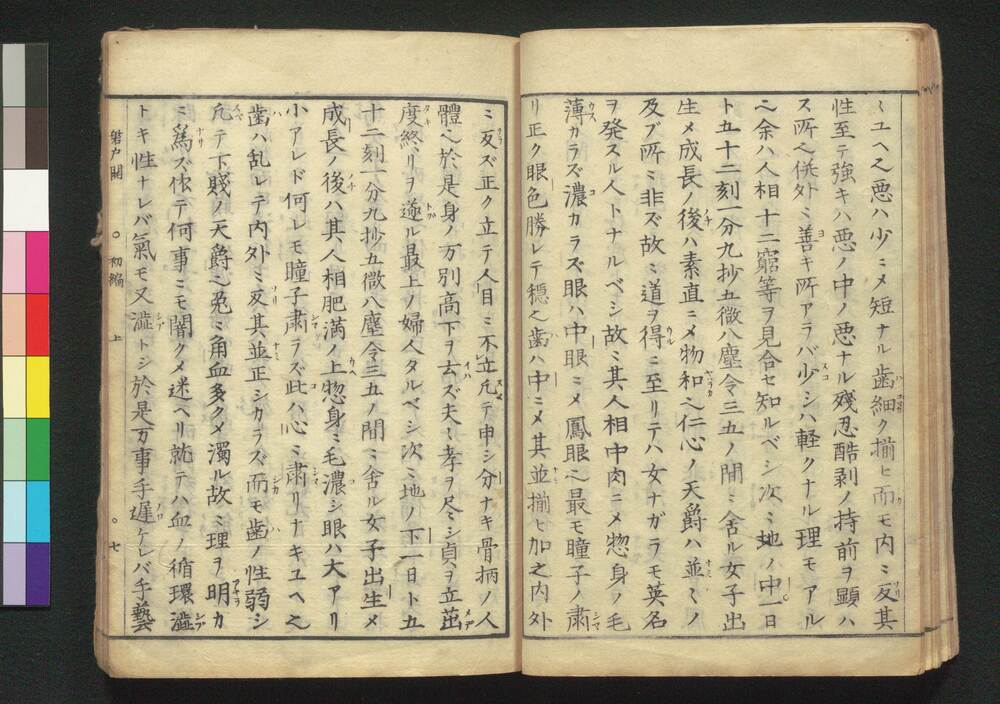 ミユヘ之悪ハ少ニメ短ナル歯細ク揃ヒ而モ内ミ反其
性至テ強キハ悪ノ中ノ悪ナル残忍酷剥ノ持前ヲ顯ハ
ス所ヘ併外ミ善キ所アラバ少シハ軽クナル理モアル
ヘ余ハ人相十二窮等ヲ見合セ知ルベシ次ミ地ノ中一日
ト五十二刻一分九抄五微八塵令三五ノ間ミ舎ル女子出
生メ成長ノ後ハ素直ニメ物和之仁心ノ天爵ハ並ミノ
及ブ所ミ非ズ故ミ道ヲ得ミ至リテハ女ナガラモ英名
ヲ発スル人トナルベシ故ミ其人相中肉ニメ惣身ノ毛
薄カラズ濃カラズ眼ハ中眼ニメ鳳眼之最モ瞳子ノ粛
リ正ク眼色勝レテ穏之歯ハ中ニメ其並揃ヒ加之内外
ミ反ズ正ク立テ人目ミ不立凢テ申シ分ナキ骨柄ノ人
體之於是身ノ万別高下ヲ云ズ夫ミ孝ヲ尽シ貞ヲ立茁
度終リヲ遂ル最上ノ婦人タルベシ次ミ地ノ下一日ト五
十二刻一分九抄五微八塵令三五ノ間ミ舎ル女子出生メ
成長ノ後ハ其人相肥満ノ上惣身ミ毛濃シ眼ハ大アリ
小アレド何レモ瞳子粛ラズ此ハ心ミ粛リナキユヘ之
歯ハ乱レテ内外ミ反其並正シカラズ而モ歯ノ性弱シ
凢テ下賤ノ天爵之兎ミ角血多クメ濁ル故ミ理ヲ明カ
ミ爲ズ依テ何事ミモ闇クメ迷ヘリ就テハ血ノ循環澁
トキ性ナレバ氣モ又澁トシ於是万事手遅ケレバ手藝
岩戸開 ○初編 上 ○七